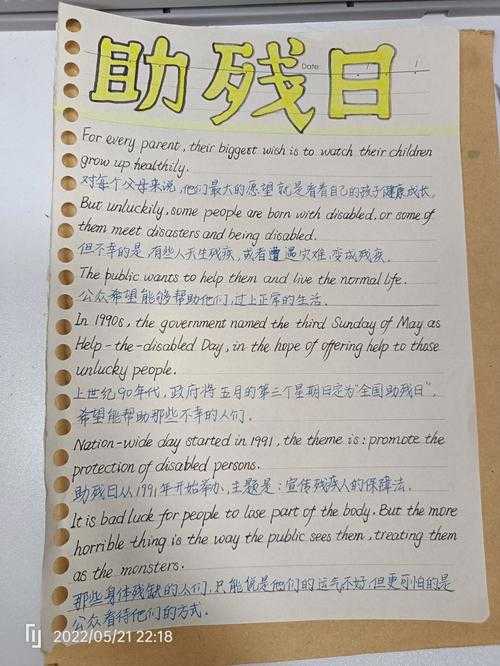 助残日
Date:
For every parent, their biggest wish is to watch their children
grow up healthily.
对每个父母来说,他们最大的愿望就是看着自己的孩子健康成长。
But unluckily, some people are born with disabled, or some of
them meet disasters and being disabled.
但不幸的是,有些人天生残疾,或者遭遇灾难,变成残疾。
The public wants to help them and live the normal life.
公众希望能够帮助他们,过上正常的生活。
In 1990s, the government named the third Sunday of May as
Help-the-disabled Day, in the hope of offering help to those
unlucky people.
上世纪90年代,政府将五月的第三个星期日定为“全国助残日”,
希望能帮助那些不幸的人们。
Nation-wide day started in 1991, the theme is: promote the
protection of disabled persons.
助残日从1991年开始举办,主题是:宣传残疾人的保障法。
It is bad luck for people to lose part of the body. But the more
horrible thing is the way the public sees them, treating them
as the monsters.
那些身体残缺的人们,只能说是他们的运气不好,但更可怕的是
公众看待他们的方式。
2022/05/21 22:18